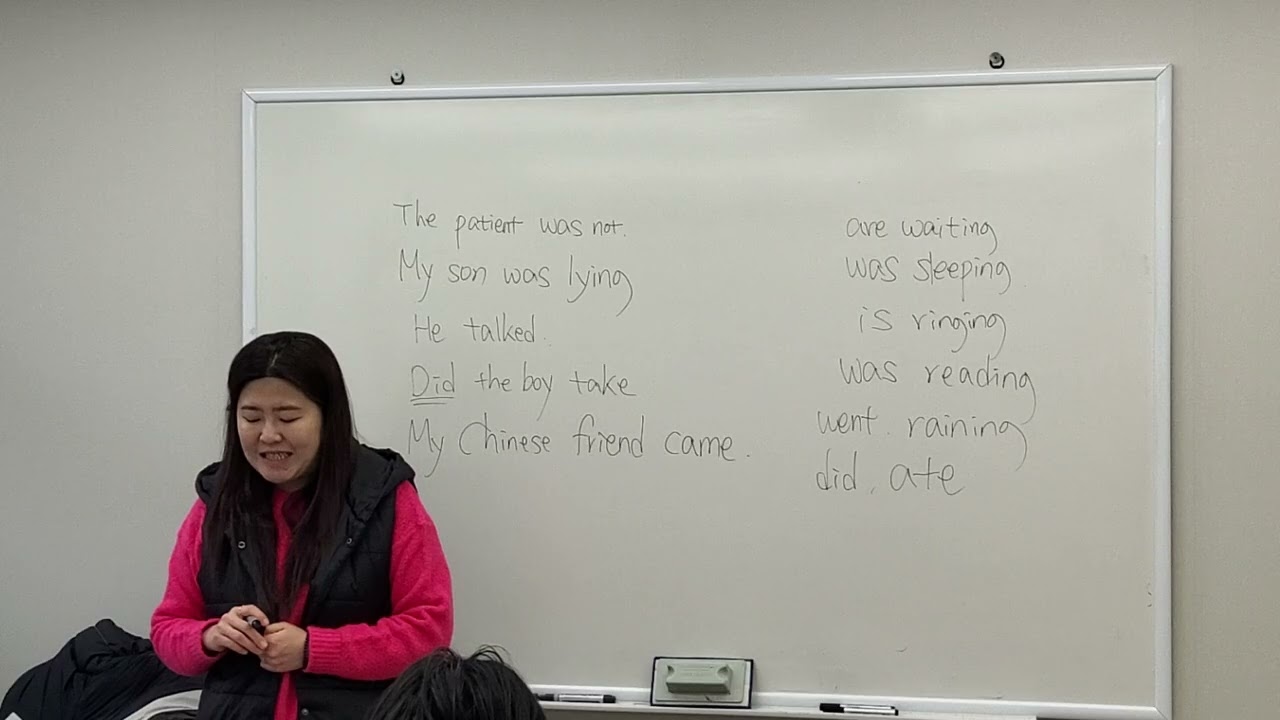 The patient was not.
My son was lying
He talked.
Did the boy take
My Chinese friend came.
are waiting
was sleeping
is ringing
was reading
went. raining
did. ate